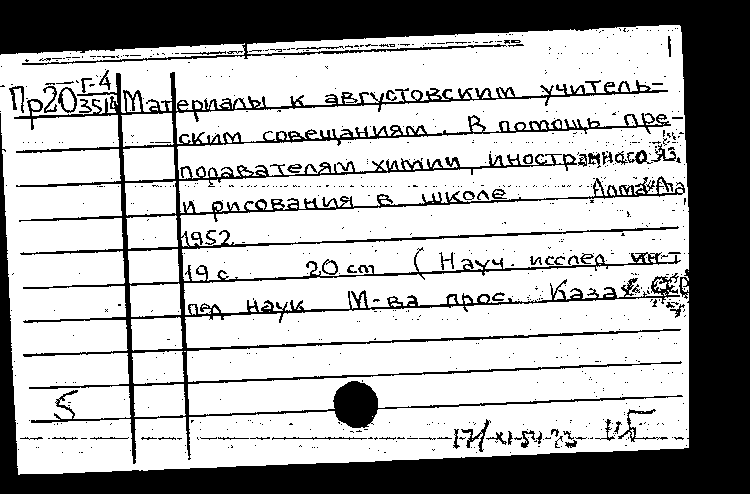 Пр20 Г-4 35/4 Материалы к августовским учитель-
ским совещаниям. В помощь пре-
подавателям химии, иностранного яз.
и рисования в школе. Алма-Ата
1952.
19 с. 20 cm (Науч. исслед. ин-т
пед. наук М-ва прос. Казах ССР
5
17/XI-54 г. ИБ